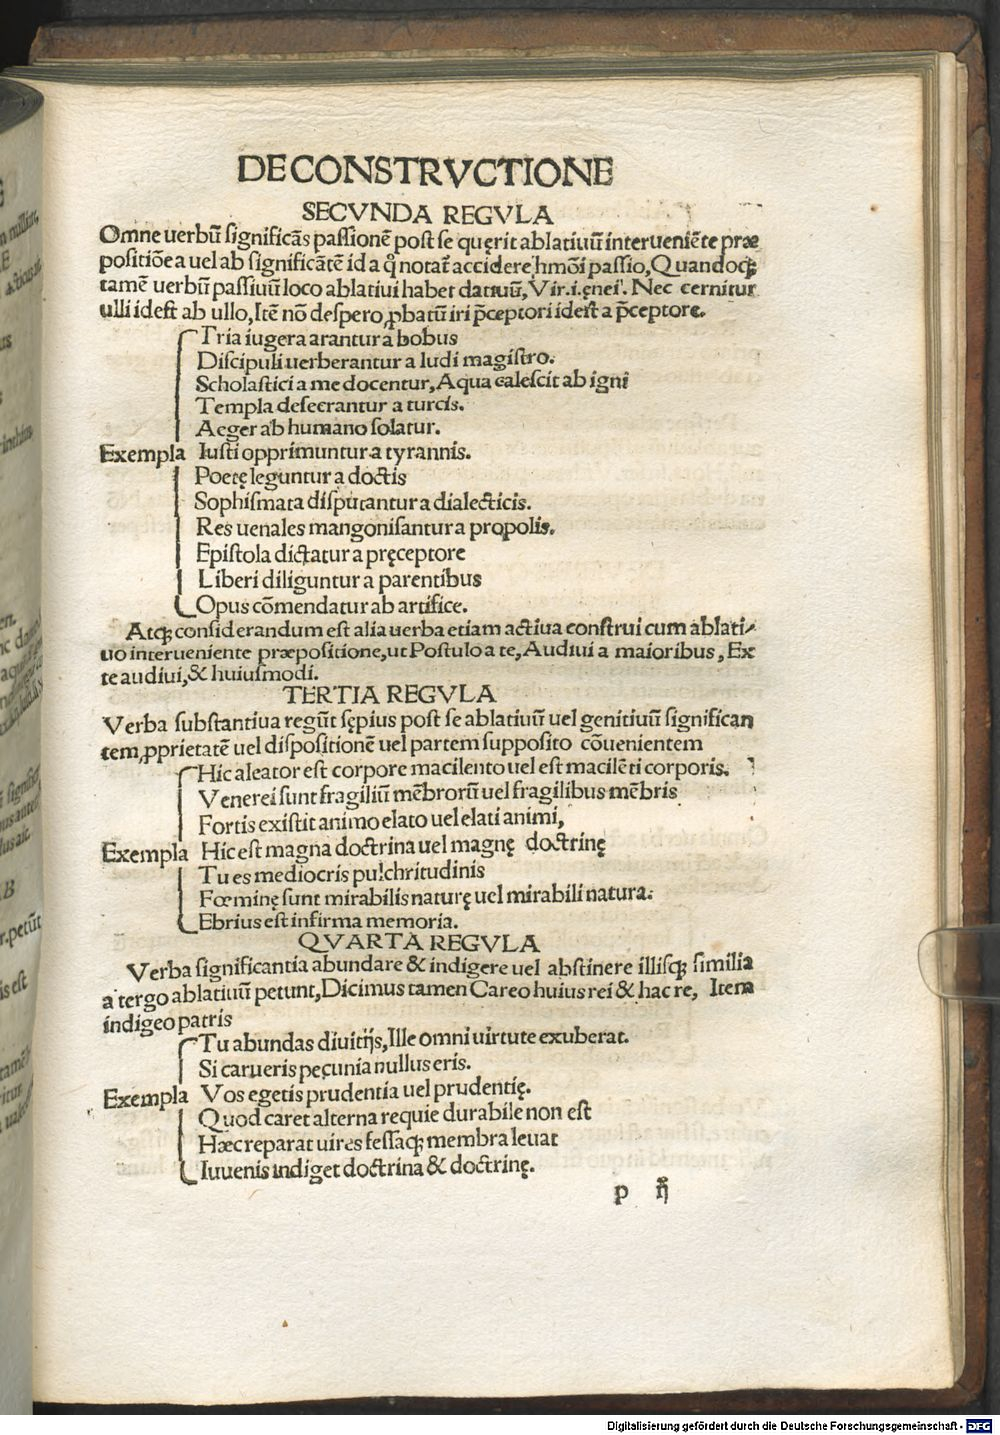 DE CONSTRVCTIONE
SECVNDA REGVLA
Omne uerbū significās passionē post se quęrit ablatiuū interueniēte præ
positiōe a uel ab significātē id a q̊ notat̄ accidere hmōi passio, Quandoqꝫ
tamē uerbū passiuū loco ablatiui habet datiuū, Vir.i.ęnei. Nec cernitur
ulli idest ab ullo, Itē nō despero, ꝓbatū iri p̄ceptori idest a p̄ceptore.
Tria iugera arantur a bobus
Discipuli uerberantur a ludi magistro.
Scholastici a me docentur, Aqua calescit ab igni
Templa desecrantur a turcis.
Aeger ab humano solatur.
Exempla Iusti opprimuntur a tyrannis.
Poetę leguntur a doctis
Sophismata disputantur a dialecticis.
Res uenales mangonisantur a propolis.
Epistola dictatur a pręceptore
Liberi diliguntur a parentibus
Opus cōmendatur ab artifice.
Atqꝫ considerandum est alia uerba etiam actiua construi cum ablati/
uo interueniente præpositione, ut Postulo a te, Audiui a maioribus, Ex
te audiui, & huiusmodi.
TERTIA REGVLA
Verba substantiua regūt sępius post se ablatiuū uel genitiuū significan
tem, ꝓprietatē uel dispositionē uel partem supposito cōuenientem
Hic aleator est corpore macilento uel est macilēti corporis.
Venerei sunt fragiliū mēbrorū uel fragilibus mēbris
Fortis existit animo elato uel elati animi,
Exempla Hic est magna doctrina uel magnę doctrinę
Tu es mediocris pulchritudinis
Fœminę sunt mirabilis naturę uel mirabili natura.
Ebrius est infirma memoria.
QVARTA REGVLA
Verba significantia abundare & indigere uel abstinere illisqꝫ similia
a tergo ablatiuū petunt, Dicimus tamen Careo huius rei & hac re, Item
indigeo patris
Tu abundas diuitijs, Ille omni uirtute exuberat.
Si carueris pecunia nullus eris.
Exempla Vos egetis prudentia uel prudentię.
Quod caret alterna requie durabile non est
Hæc reparat uires fessaqꝫ membra leuat
Iuuenis indiget doctrina & doctrinę.
p ij
Digitalisierung gefördert durch die Deutsche Forschungsgemeinschaft - DFG